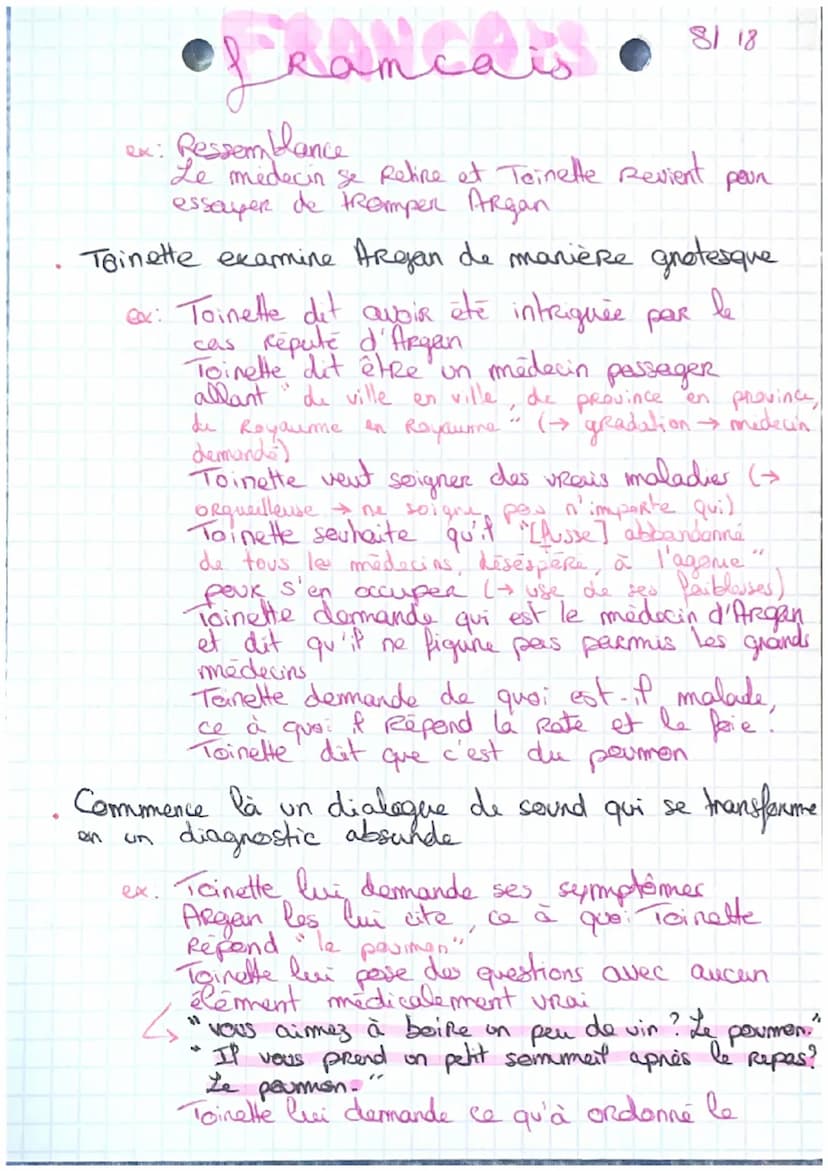 FRANCAIS
francais
8/ 18
ex: Ressemblance
Le médecin se retire et Toinette revient pour
essayer de tromper Argan
. Toinette examine Argan de manière grotesque
ex: Toinette dit avoir été intriguée par le
cas réputé d'Argan
Toinette dit être un médecin passager
allant "de ville en ville, de province en province,
de Royaume en Royaume" (→ gradation → médecin
demandé)
Toinette veut soigner des vrais maladies (→
orgueilleuse → ne soigne pas n'importe qui)
Toinette souhaite qu'il "[fusse] abbandonné
de tous les médecins, désespéré, à l'agonie"
pour s'en occuper (→ use de ses faiblesses)
Toinette demande qui est le médecin d'Argan
et dit qu'il ne figure pas parmis les grands
médecins
Toinette demande de quoi est-il malade,
ce à quoi il répond la rate et le foie.
Toinette dit que c'est du poumon
. Commence là un dialogue de sourd qui se transforme
en un diagnostic absurde
ex. Toinette lui demande ses symptômes
Argan les lui cite, ce à quoi Toinette
répond "le poumon"
Toinette lui pose des questions avec aucun
élément médicalement vrai
↳ "vous aimez à boire un peu de vin? Le poumon."
"Il vous prend un petit sommeil après le repas?
Le poumon."
Toinette lui demande ce qu'à ordonné le